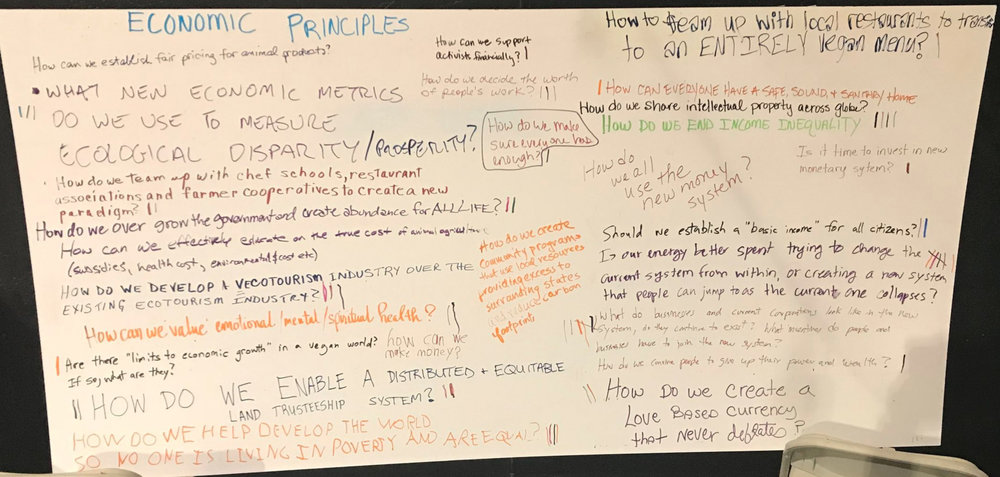 ECONOMIC PRINCIPLES
How can we establish fair pricing for animal products?
How can we support
activists financially?
How do we decide the worth
of people's work?
• WHAT NEW ECONOMIC METRICS
DO WE USE TO MEASURE
ECOLOGICAL DISPARITY/PROSPERITY?
How do we make
sure everyone has
enough?
• How do we team up with chef schools, restaurant
associations and farmer cooperatives to create a new
paradigm?
How do we over grow the government and create abundance for ALL LIFE?
How can we effectively educate on the true cost of animal agriculture
(subsidies, health cost, environmental $ cost etc)
HOW DO WE DEVELOP A VECOTOURISM INDUSTRY OVER THE
EXISTING ECOTOURISM INDUSTRY?
How do we create
community programs
that use local resources
providing excess to
surrounding states
reduce carbon
footprint
How can we 'value' emotional/mental/spiritual health?
Are there "limits to economic growth" in a vegan world?
If so, what are they?
how can we
make money?
HOW DO WE ENABLE A DISTRIBUTED + EQUITABLE
LAND TRUSTEESHIP SYSTEM?
HOW DO WE HELP DEVELOP THE WORLD
SO NO ONE IS LIVING IN POVERTY AND ARE EQUAL?
How to team up with local restaurants to
to an ENTIRELY vegan menu?
HOW CAN EVERYONE HAVE A SAFE, SOUND, + SANITARY HOME
How do we share intellectual property across globe?
HOW DO WE END INCOME INEQUALITY
How do
we all
use the
new money
system?
Is it time to invest in new
monetary sytem?
Should we establish a "basic income" for all citizens?
Is our energy better spent trying to change the
current system from within, or creating a new system
that people can jump to as the current one collapses?
What do businesses and current corporations look like in the new
system, do they continue to exist? What incentives do people and
businesses have to join the new system?
How do we convince people to give up their power and wealth?
How Do we Create a
Love Based currency
that never deflates?